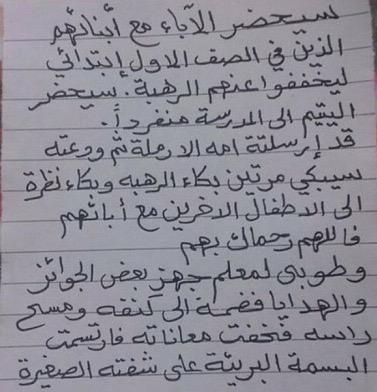 سيحضر الآباء مع أبنائهم
الذين في الصف الاول إبتدائي
ليخففوا عنهم الرهبة . سيحضر
اليتيم الى المدرسة منفرداً .
قد إرسلتة امه الارملة ثم ودعته
سيبكي مرتين بكاء الرهبه وبكاء نظرة
الى الاطفال الاخرين مع أبائهم
فاللهم رحماك بهم
وطوبى لمعلم جهز بعض الجوائز
والهدايا فضمة الى كتفه ومسح
راسه فخفت معاناته فارتسمت
البسمة البريئة على شفته الصغيرة